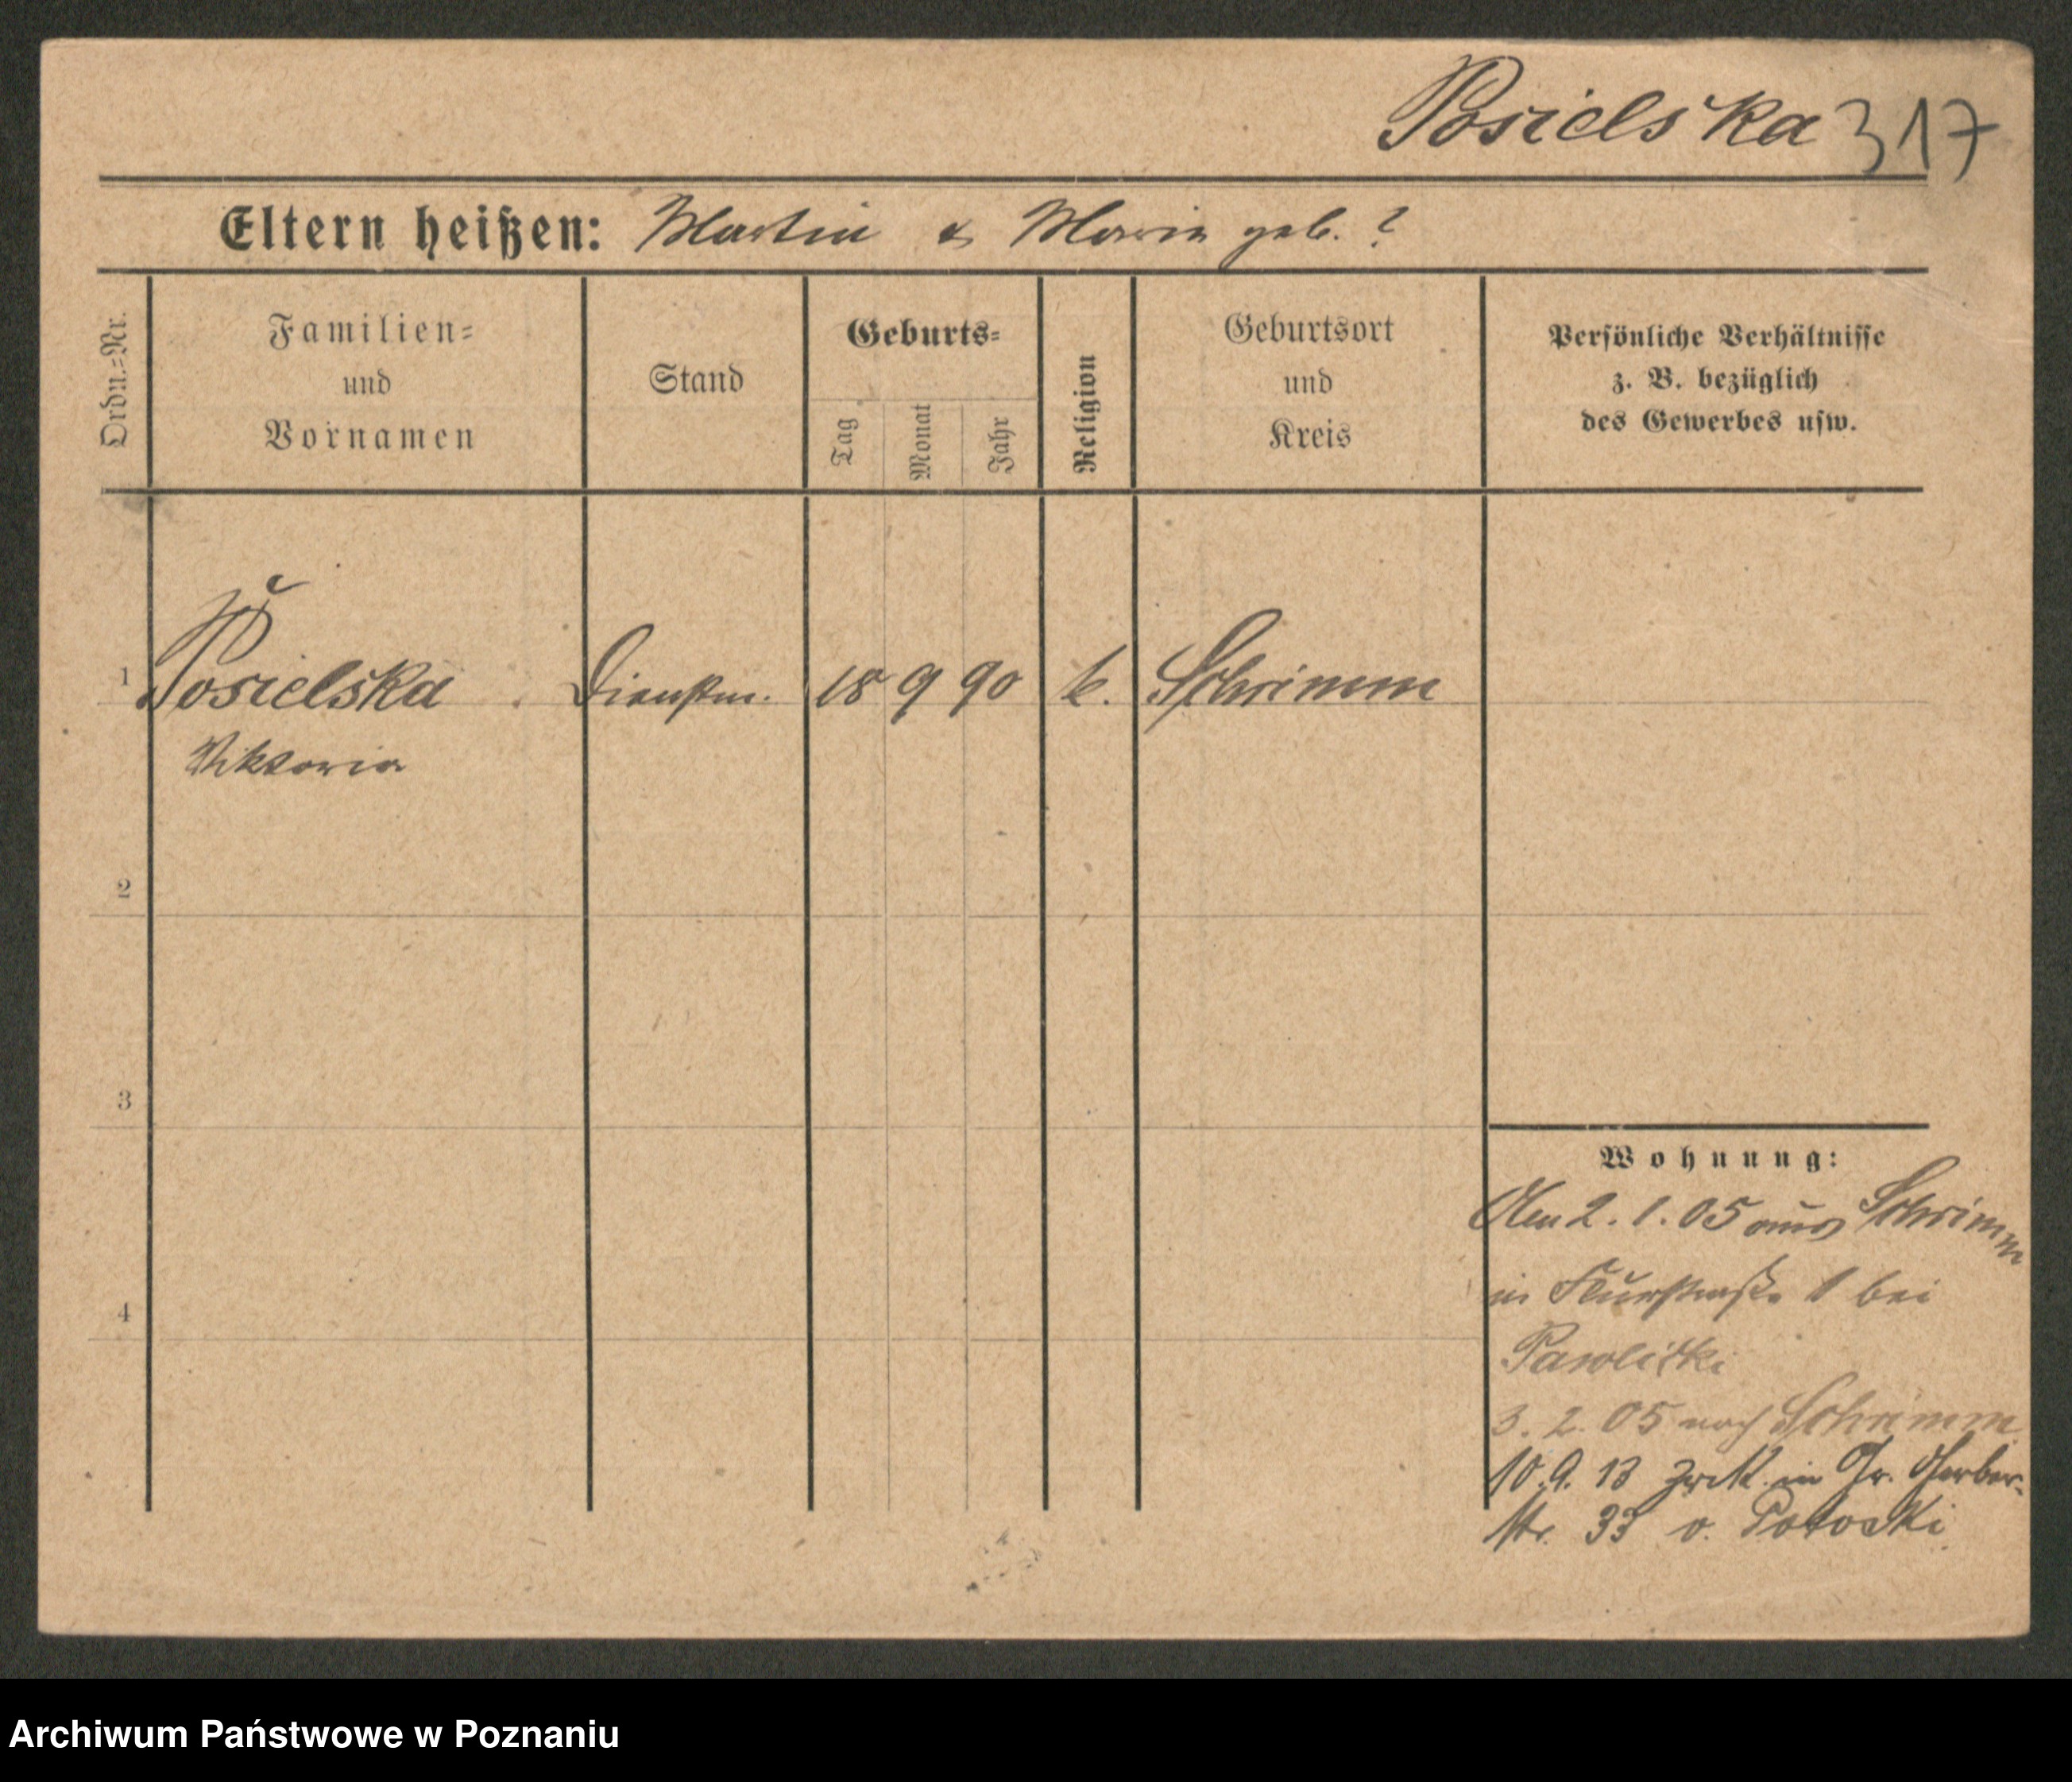 Posielska 317
Eltern heißen: Martin & Maria geb. ?
Ordn.-Nr.
Familien-
und
Vornamen
Stand
Geburts-
Tag
Monat
Jahr
Religion
Geburtsort
und
Kreis
Persönliche Verhältnisse
z. B. bezüglich
des Gewerbes usw.
1 Posielska Dienstm. 18 9 90 k. Schrimm
Viktoria
2
3
4
Wohnung:
Am 2. 1. 05 aus Schrimm
in Flurstraße 1 bei
Pawlitzki
3. 2. 05 nach Schrimm
10. 9. 13 zrck. in Gr. Gerber-
str. 33 v. Potocki
Archiwum Państwowe w Poznaniu